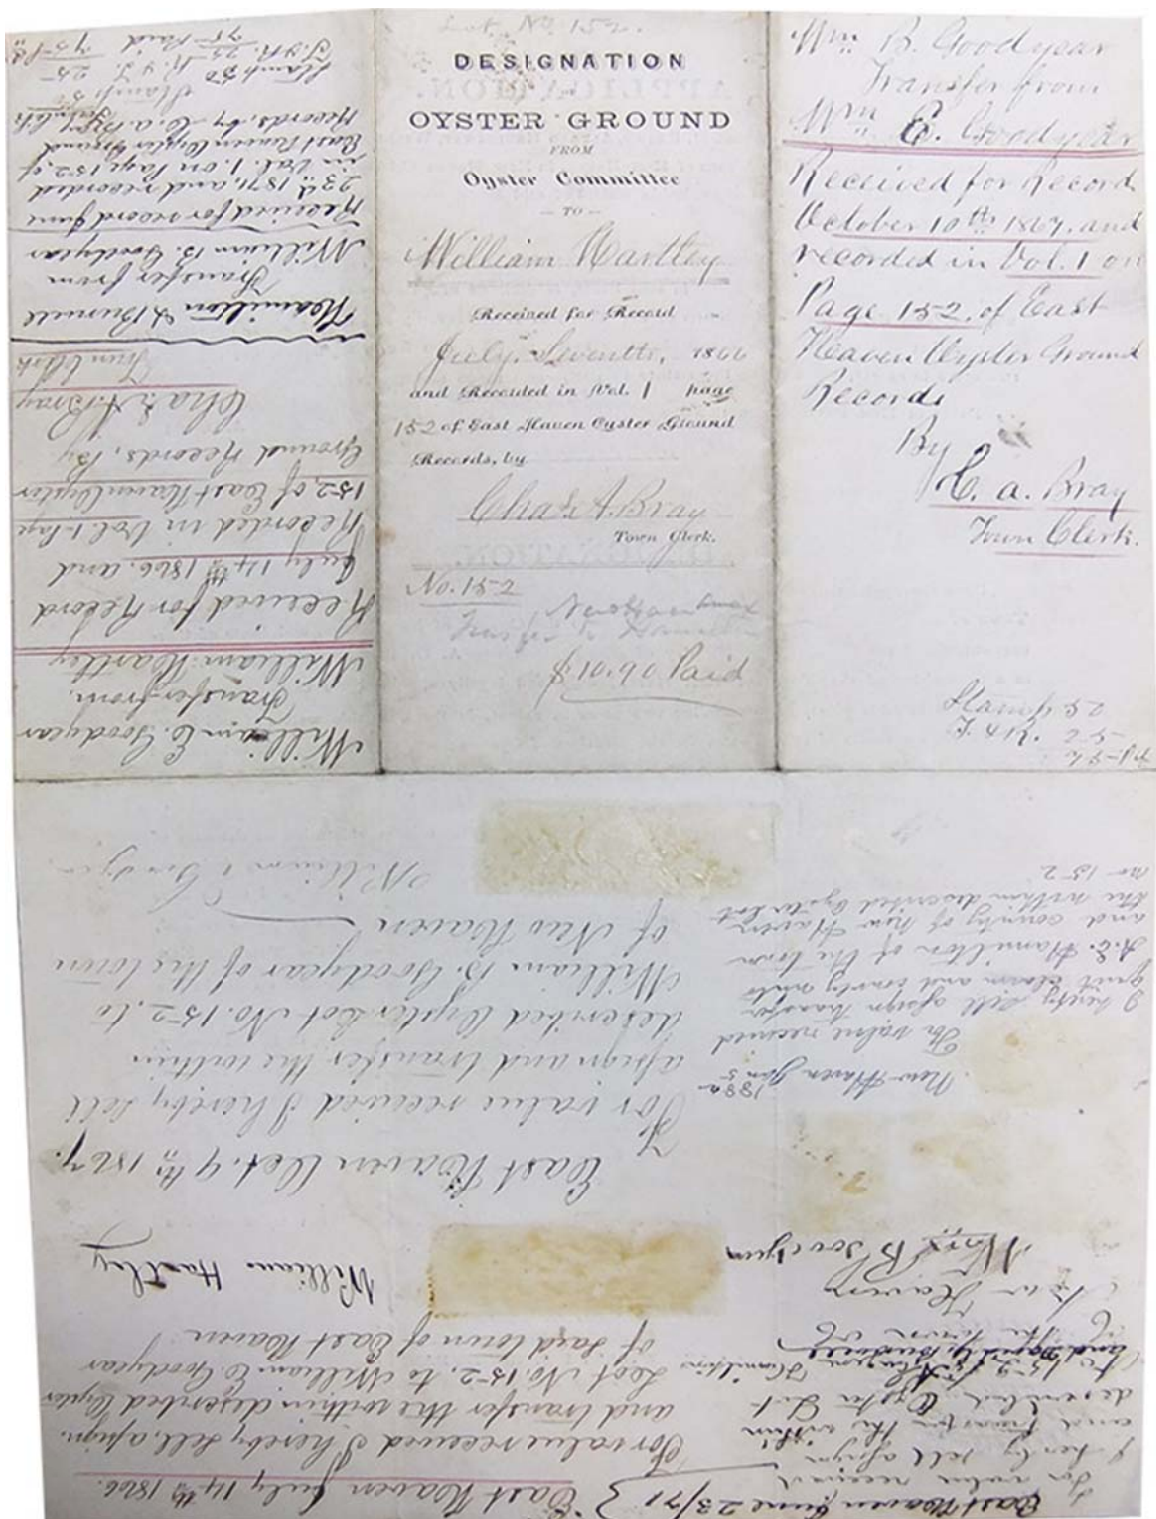 Lot No 152.
DESIGNATION
OYSTER GROUND
FROM
Oyster Committee
— TO —
William Hartley
Received for Record
July Seventh, 1866
and Recorded in Vol. 1 page
152 of East Haven Oyster Ground
Records, by
Chas A. Bray
Town Clerk.
No. 152
$10.90 Paid
Wm B. Goodyear
Transfer from
Wm E. Goodyear
Received for Record
October 10th 1867, and
recorded in Vol. 1 on
Page 152, of East
Heaven Oyster Ground
Records
By
C. A. Bray
Town Clerk.
Stamp 50
F. & R. 25
75 Pd
William E. Goodyear
Transfer from
William Hartley
Received for Record
July 14th 1866. and
Recorded in Vol. 1 Page
152, of East Haven Oyster
Ground Records, By
Chas. A. Bray
Town Clerk
Hamilton & Bunnell
Transfer from
William B. Goodyear
Received for record June
23d 1871, and recorded
in Vol. 1. on Page 152, of
East Haven Oyster Ground
Records. by C. A. Bray
Stamp 50
East Haven July 14th 1866.
For value received I hereby sell, assign,
and transfer the within described Oyster
Lot No. 152, to William E Goodyear
of said town of East Haven
William Hartley
East Haven Oct. 9th 1867.
For value received I hereby sell
assign and transfer the within
described Oyster Lot No. 152, to
William B. Goodyear of the town
of New Haven
William E Goodyear
East Haven June 23/71
For value received
I herby sell assign
and transfer the within
described Oyster Lot
No 152 to
Hamilton
of the town of
New Haven
Wm B Goodyear
New Haven Jan 5 188
For value received
I hereby sell assign transfer
quit claim and convey unto
Hamilton of the town
and county of New Haven
the within described oyster lot
no 152